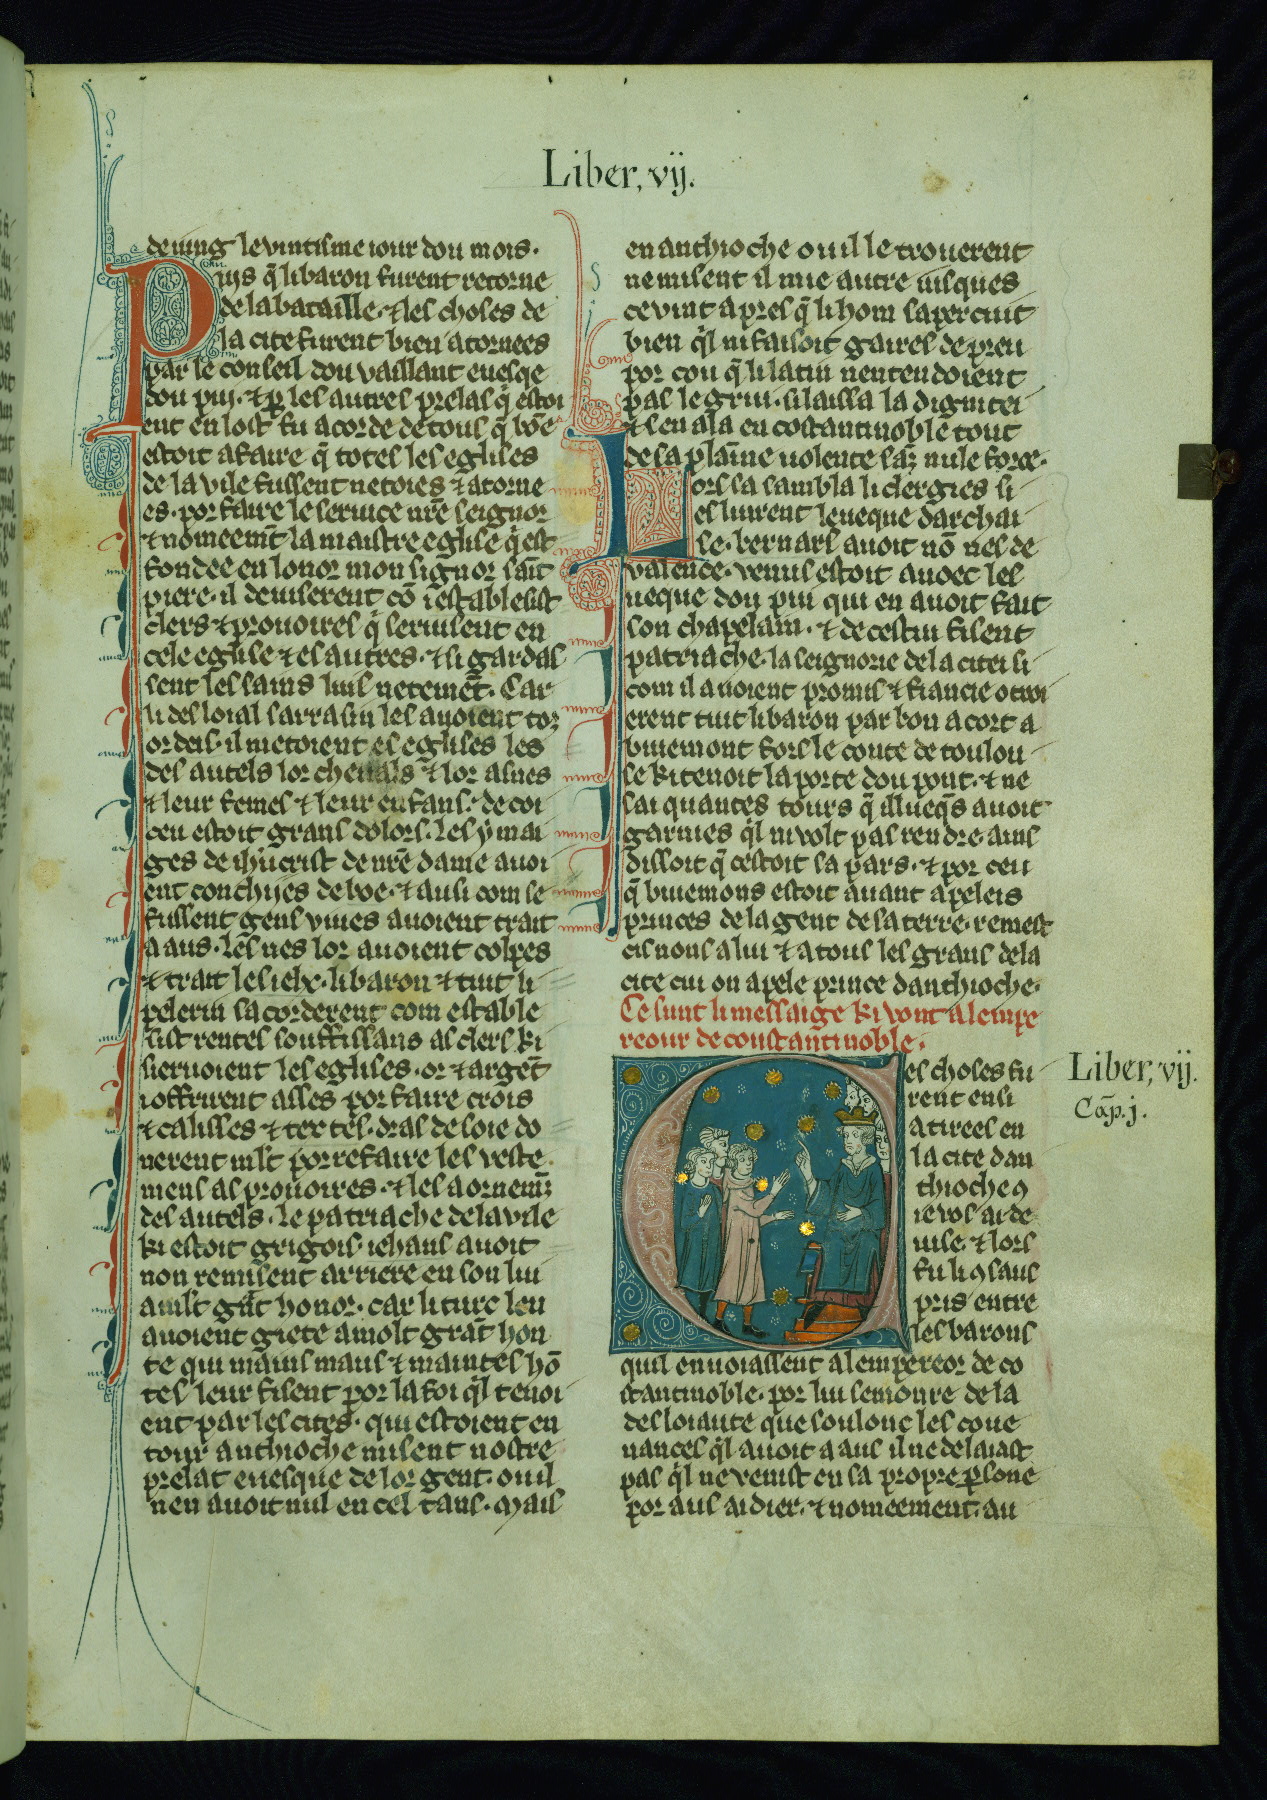 62
Liber, vij.
de iuing le vintisme iour dou mois.
Puis q̃ li baron furent retorne
de la bataille. ⁊ les choses de
la cite furent bien atornees
par le conseil dou vaillant euesqe
dou pui. ⁊ ꝑ les autres prelas q̃ estoi
ent en lost fu acorde de tous q̃ bōe
estoit a faire q̃ totes les eglises
de la vile fussent netoies ⁊ atorne
es. por faire le seruice nr̃e seignor
⁊ nomeemt̃ la maistre eglise q̃ est
fondee en lonor mon signor saīt
piere. il deuiserent cō i establesist
clers ⁊ prouoires q̃ seruisent en
cele eglise ⁊ es autres. ⁊ si gardas
sent les sains lius netemēt. Car
li desloial sarrasin les auoient tor
ordeis. il metoient es eglises les
des autels lor cheuals ⁊ lor asnes
⁊ leur femes ⁊ leur enfans. de coi
ceu estoit grans dolors. Les ymai
ges de ihūcrist de nr̃e dame auoi
ent conchijes de boe. ⁊ ausi com se
fussent gens viues auoient trait
a aus. Les nes lor auoient colpes
⁊ trait les ielx. li baron ⁊ tuit li
pelerin sacorderent com estable
sist rentes souffissans as clers ki
sieruoient les eglises. or ⁊ argēt
i offrirent asses por faire crois
⁊ calisses ⁊ textes. dras de soie do
nerent mlt̃ por refaire les veste
mens as prouoires. ⁊ les aornemz
des autels. Le patriache de la vile
ki estoit grigois. iehans auoit
non remisent arriere en son liu
a mlt̃ grāt honor. car li turc leu
auoient giete a molt grāt hon
te qui mains maus ⁊ maintes hō
tes leur fisent por la foi ql̃ tenoi
ent par les cites. qui estoient en
tour anthioche misent nostre
prelat euesque de lor gent. ou il
nen auoit nul en cel tans. Mais
en anthioche ou il le trouerent
ne misent il mie autre iusques
ce vint apres q̃ li hom saperciut
bien ql̃ ni faisoit gaires de preu
por cou q̃ li latin nentendoient
pas le griu. si laissa la dignitei
⁊ sen ala en costantinoble tout
de sa plaine uolente sāz nule force.
Lors sa sambla li clergies si
eslurent leueque darchai
se. bernars auoit nō nes de
valence. venus estoit auoec les
ueque dou pui qui en auoit fait
son chapelain. ⁊ de cestui fisent
patriache. la seignorie de la citei si
com il auoient promis ⁊ fiancie otroi
erent tuit li baron par bon acort a
buiemont fors le conte de toulou
se ki tenoit la porte dou pont. ⁊ ne
sai quantes tours q̃ illueqs auoit
garnies ql̃ ni volt pas rendre. ains
dissoit q̃ cestoit sa pars. ⁊ por ceu
q̃ buiemons estoit auant apeleis
princes de la gent de sa terre. remest
cis nons a lui ⁊ a tous les grans de la
cite cui on apele prince danthioche.
Ce sunt li messaige ki vont a lempe
reour de constantinoble.
Ces choses fu
rent ensi
atirees en
la cite dan
thioche 9
ie vos ai de
uise. ⁊ lors
fu li 9saus
pris entre
les barons
quil enuoiassent a lempereor de co
stantinoble. por lui semonre de la
desloiaute que soulonc les coue
nances ql̃ auoit a aus il ne delaiast
pas ql̃ ne venist en sa propre ꝑsone
por aus aidier. ⁊ nomeement. au
Liber, vij.
Cap̄. j.